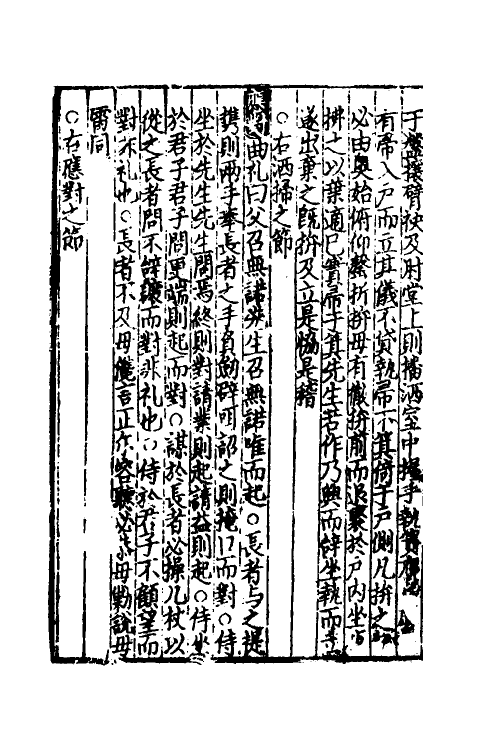 于盤攘臂袂及肘堂上則播洒室中握手執箕膺
有帚入户而立其儀不貸執帚下箕倚于户側凡拚之
必由奥始俯仰磬折拚毋有徹拚前而退聚於户内坐
拚之以葉適己實帚于箕先生若作乃興而辭坐執而
遂出棄之既拚反立是協是稽
○右洒掃之節
曲礼曰父召無諾先生召無諾唯而起○長者与之提
携則兩手奉長者之手負劒辟咡詔之則掩口而對○侍
坐於先生先生問焉終則對請業則起請益則起○侍坐
於君子君子問更端則起而對○謀於長者必操几杖以
從之長者問不辭讓而對非礼也○侍於君子不顧望而
對非礼也○長者不及毋儳言正尓容聽必恭毋勦說毋
雷同
○右應對之節